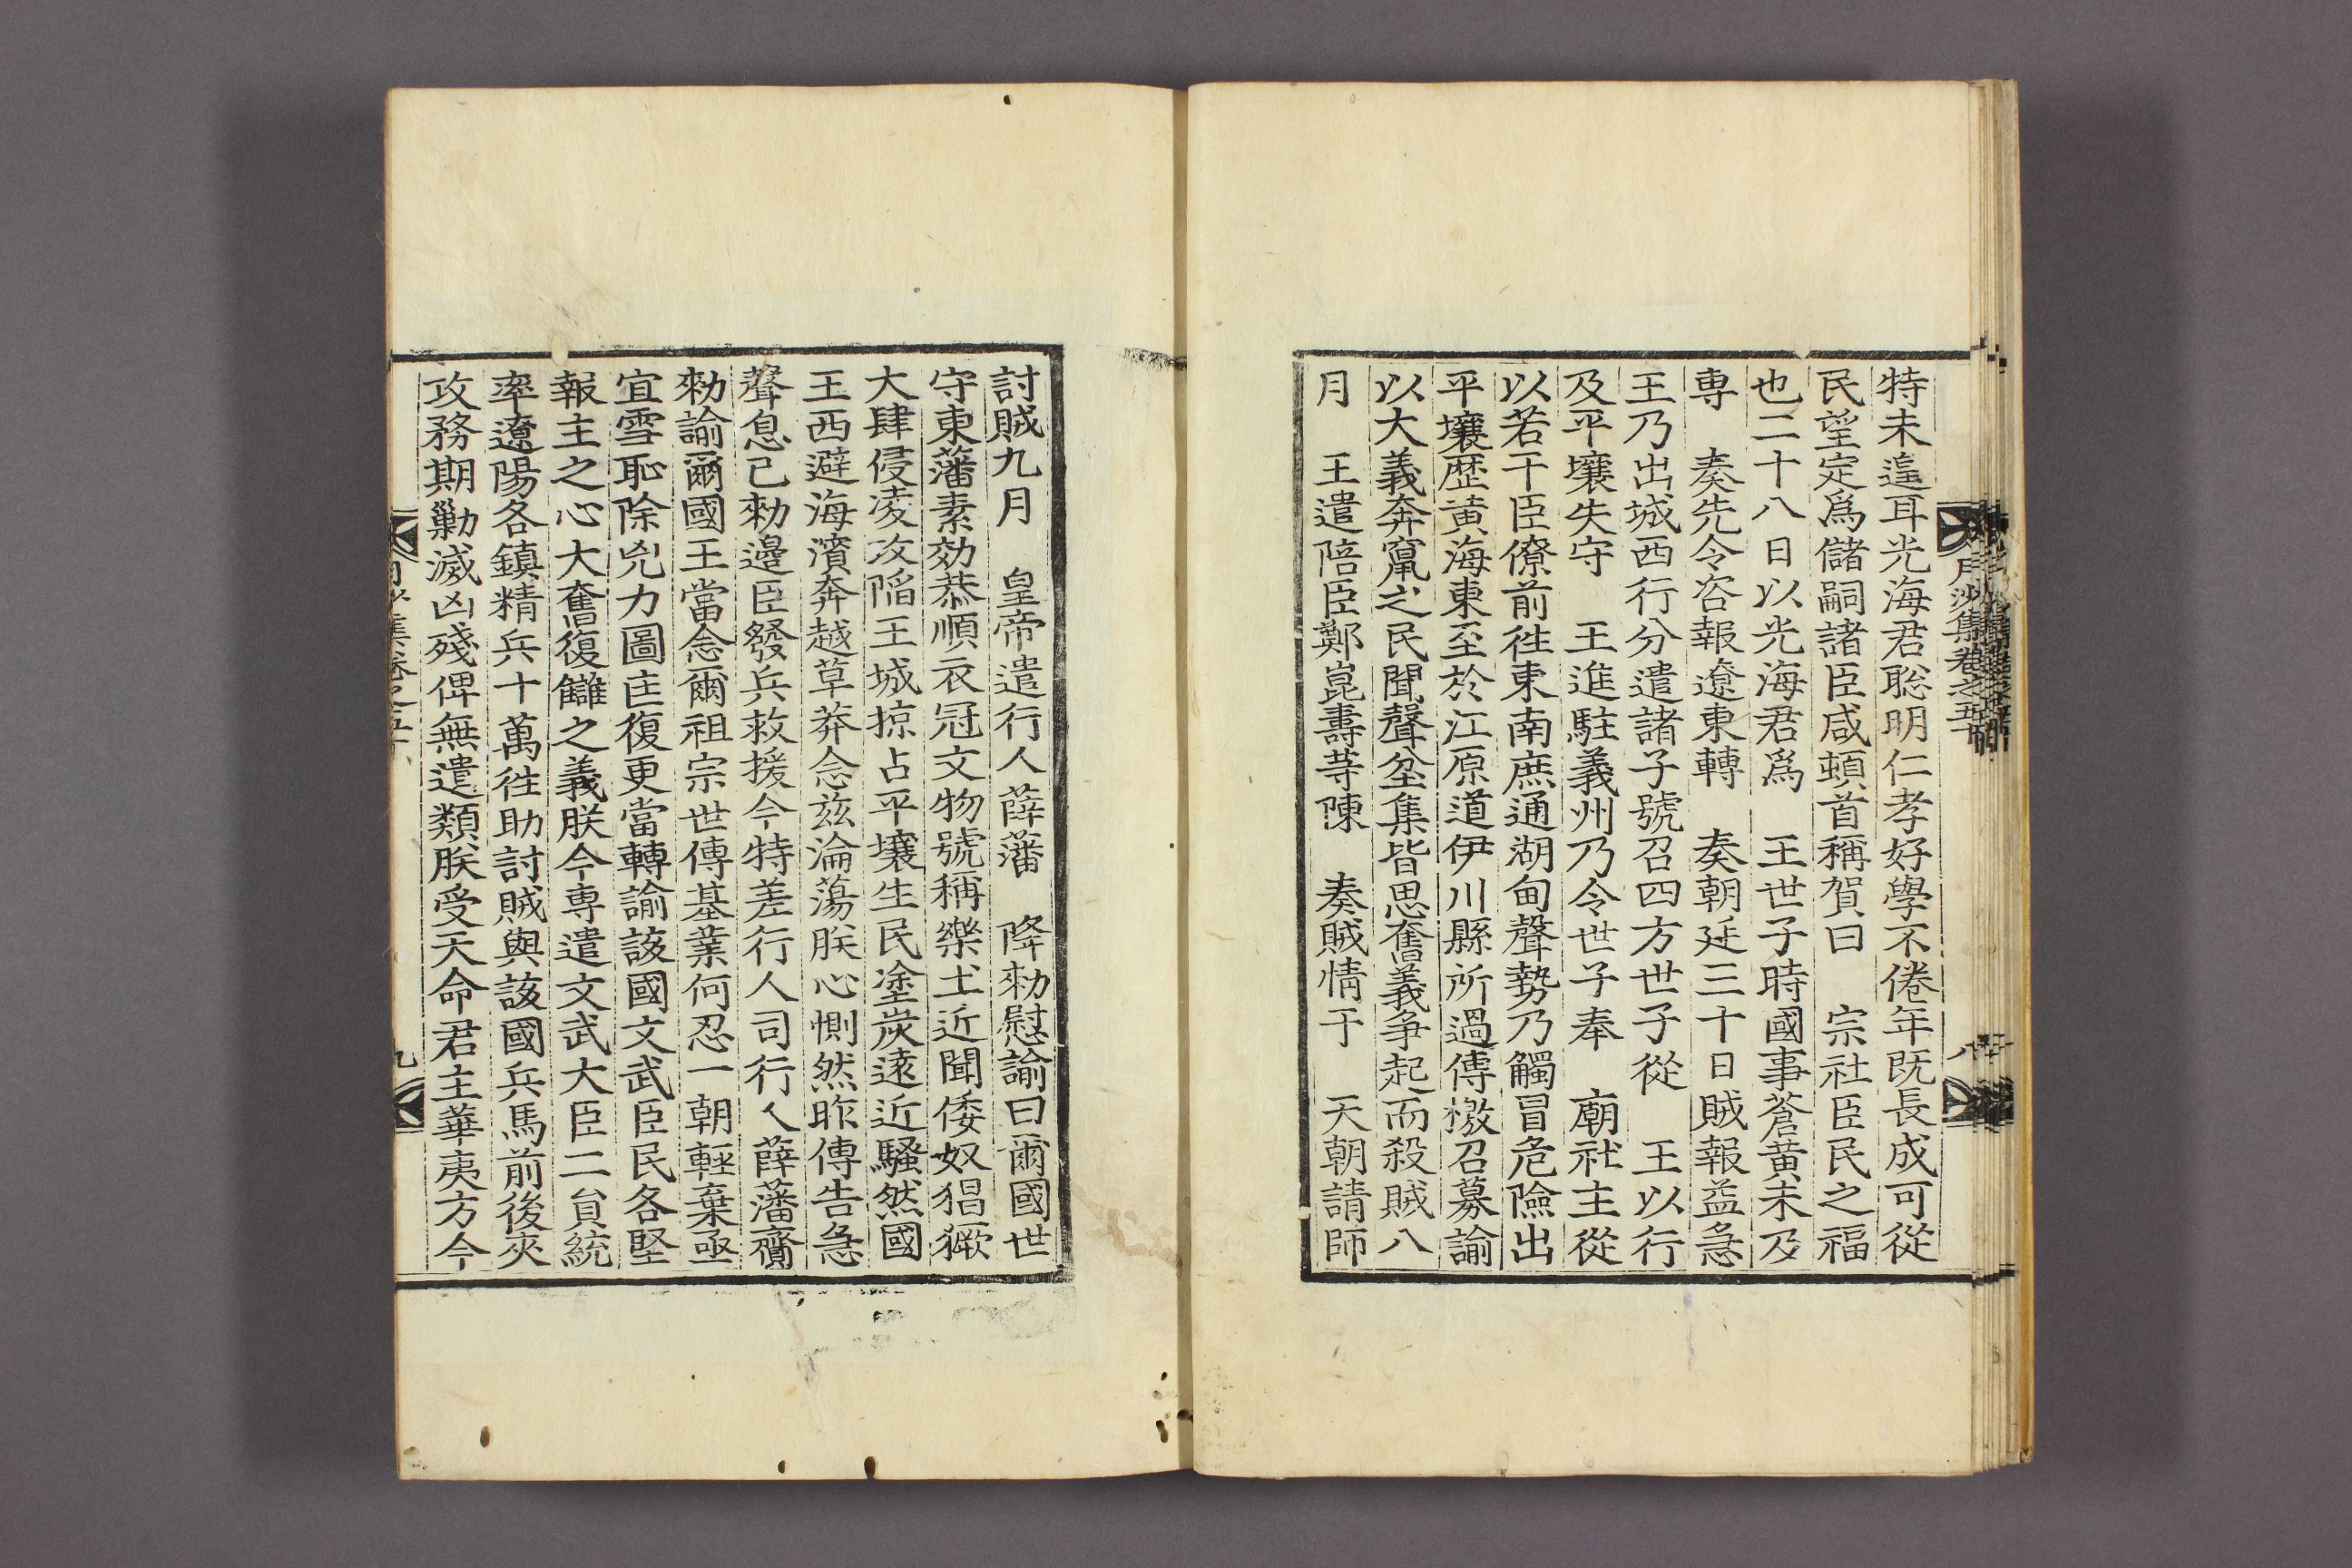 月沙集卷之五十
八
特未遑耳光海君聡明仁孝好學不倦年既長成可從
民望定爲儲嗣諸臣咸頓首稱賀曰 宗社臣民之福
也二十八日以光海君爲 王世子時國事蒼黃未及
專 奏先令咨報遼東轉 奏朝廷三十日賊報益急
王乃出城西行分遣諸子號召四方世子從 王以行
及平壤失守 王進駐義州乃令世子奉 廟社主從
以若干臣僚前徃東南庶通湖甸聲勢乃觸冒危險出
平壤歷黃海東至於江原道伊川縣所過傳檄召募諭
以大義奔竄之民聞聲坌集皆思奮義爭起而殺賊八
月 王遣陪臣鄭崑壽䓁陳 奏賊情于 天朝請師
討賊九月 皇帝遣行人薛藩 降勑慰諭曰爾國世
守東藩素効恭順衣冠文物號稱樂土近聞倭奴猖獗
大肆侵凌攻陷王城掠占平壤生民塗炭遠近騷然國
王西避海濱奔越草莽念玆淪蕩朕心惻然昨傳告急
聲息已勑邊臣發兵救援今特差行人司行人薛藩齎
勑諭爾國王當念爾祖宗世傳基業何忍一朝輕棄亟
宜雪恥除兇力圖匡復更當轉諭該國文武臣民各堅
報主之心大奮復讎之義朕今專遣文武大臣二貟統
率遼陽各鎮精兵十萬徃助討賊與該國兵馬前後夾
攻務期勦滅凶殘俾無遺類朕受天命君主華夷方今
九